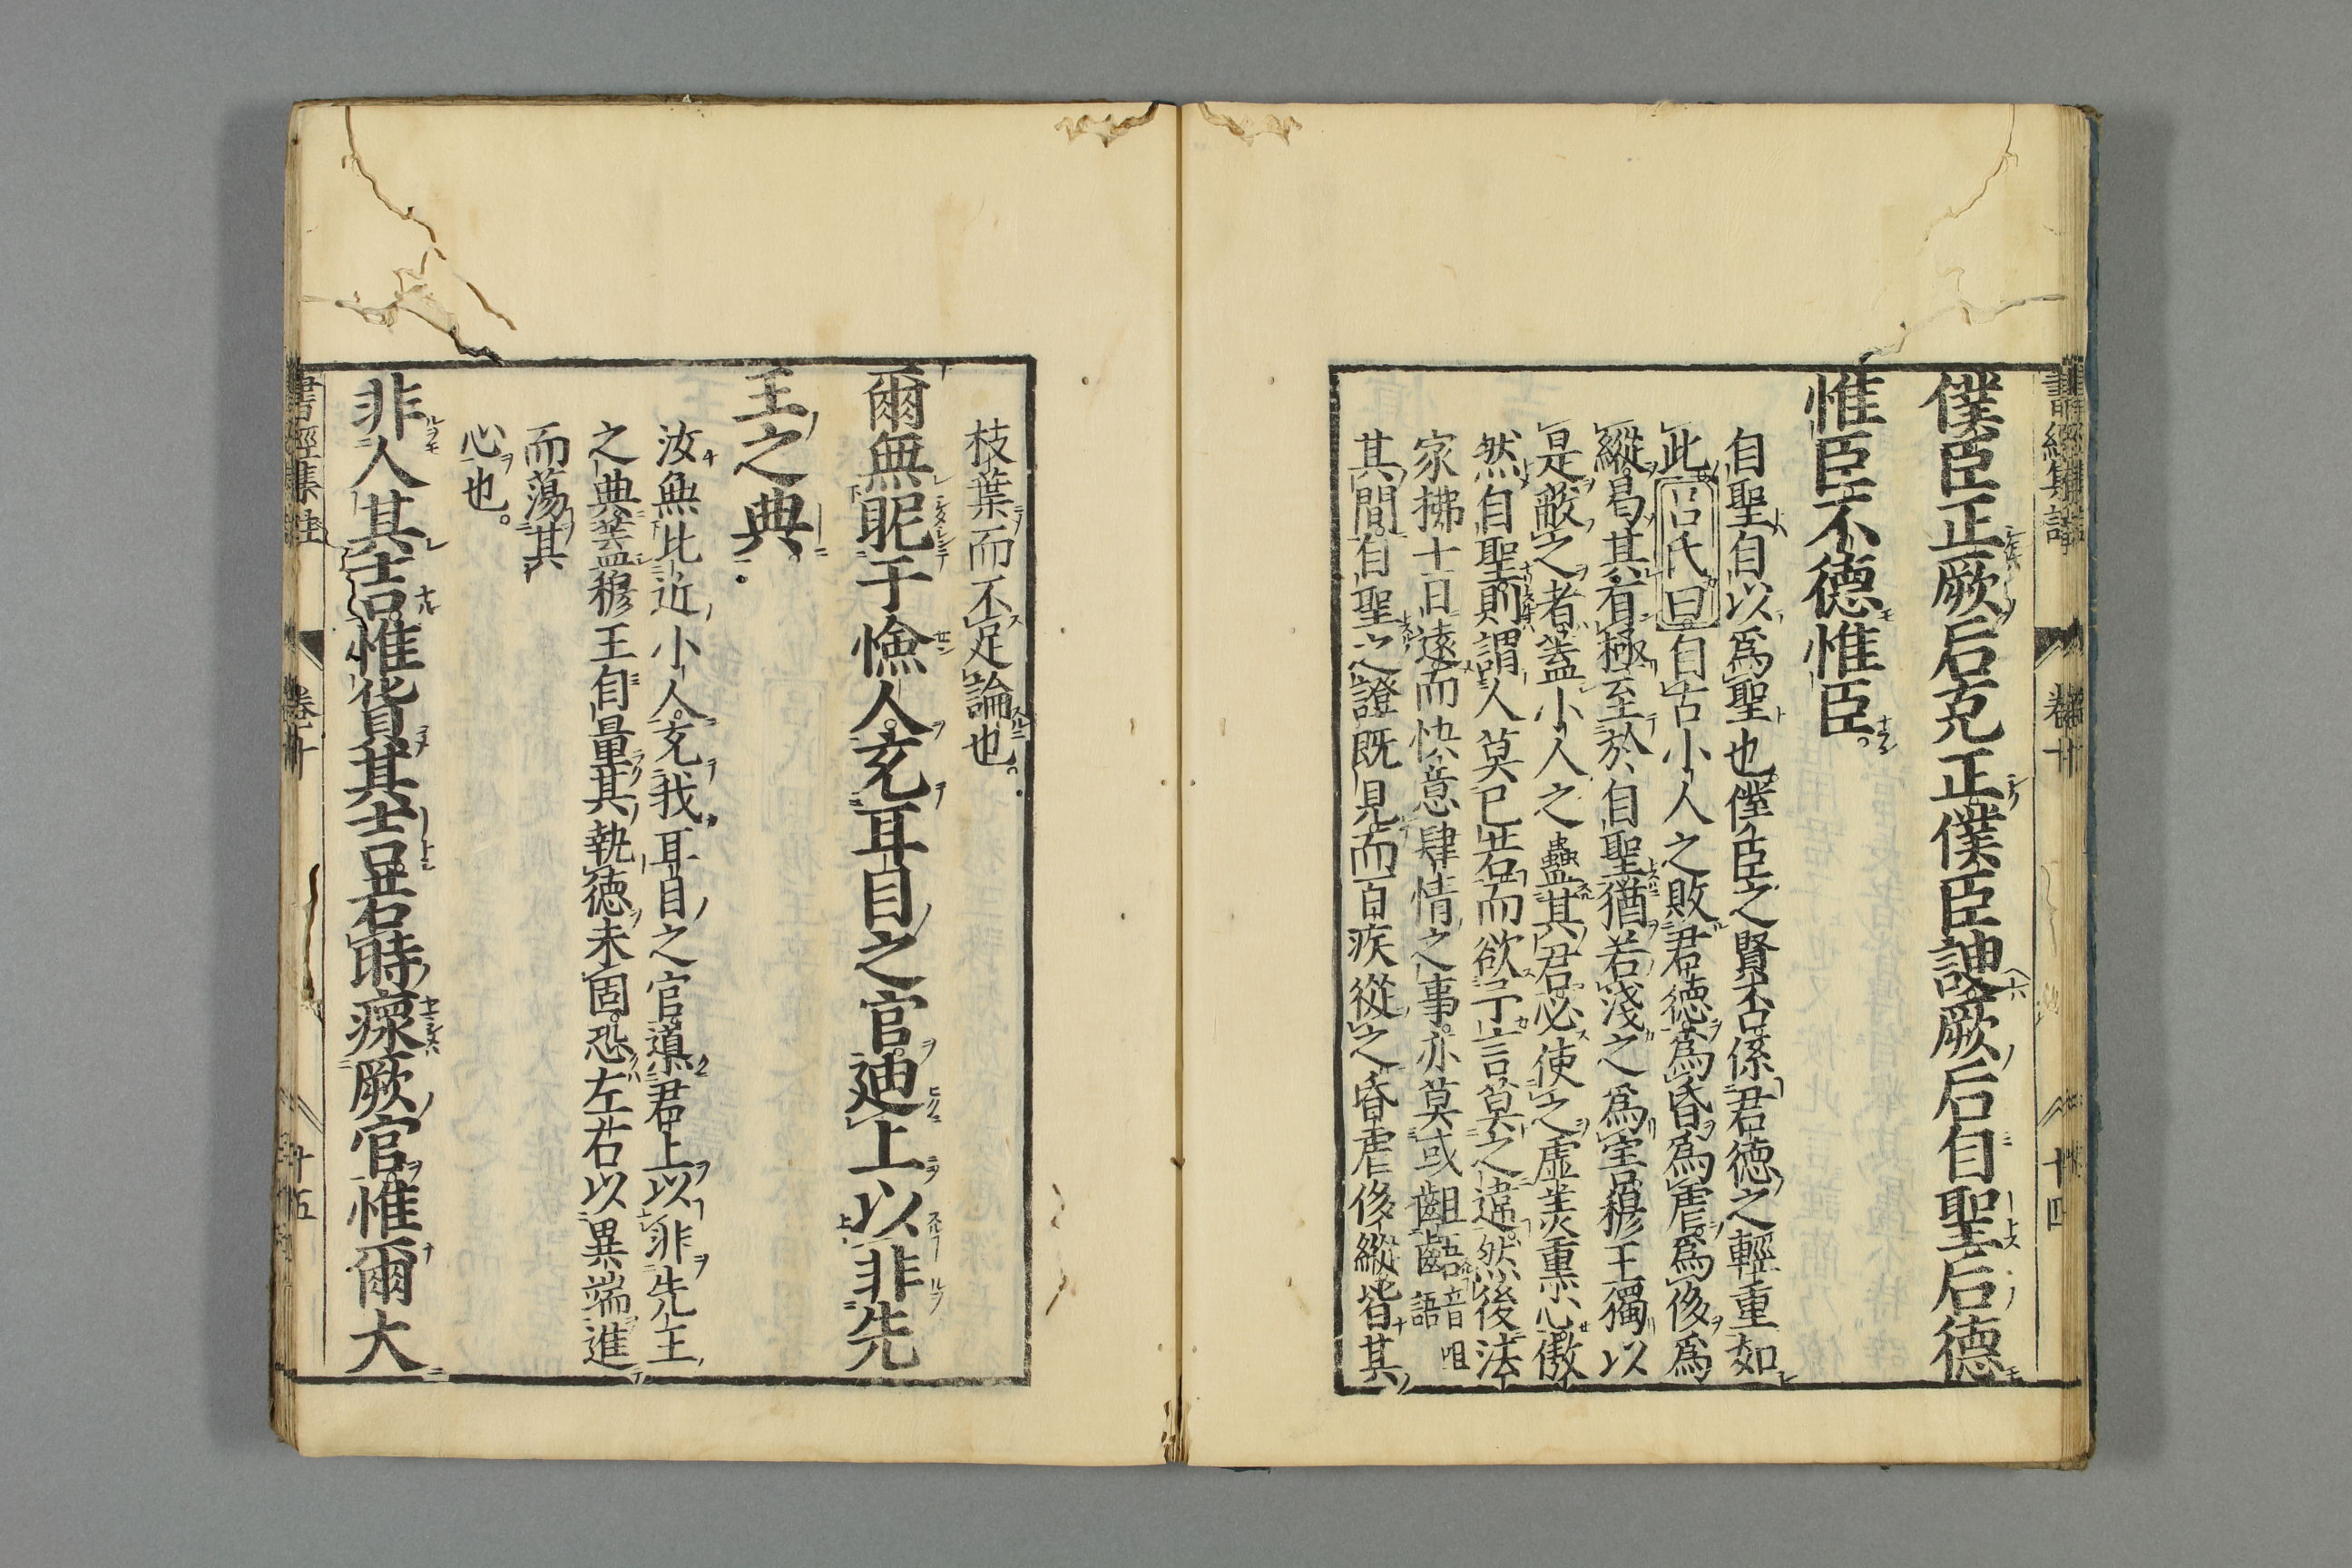 僕臣正厥后克正僕臣諛厥后自聖后德
惟臣不德惟臣
自聖自以爲聖也僕臣之賢否係君德之輕重如
此呂氏曰自古小人之敗君德爲昏爲虐爲侈爲
縱曷其有極至於自聖猶若淺之爲害穆王獨以
是蔽之者蓋小人之蠱其君必使之虛美熏心傲
然自聖則謂人莫已若而欲予言莫之違然後法
家拂士日遠而快意肆情之事亦莫或齟齬語音咀
其間自聖之證既見而百疾從之昏虐侈縱皆其
書經集註 卷十 十四
枝葉而不足論也
爾無昵于憸人充耳目之官迪上以非先
王之典
汝無比近小人充我耳目之官導君上以非先王
之典蓋穆王自量其執德未固恐左右以異端進
而蕩其
心也
非人其吉惟貨其吉若時瘝厥官惟爾大
書經集註 卷十 十五